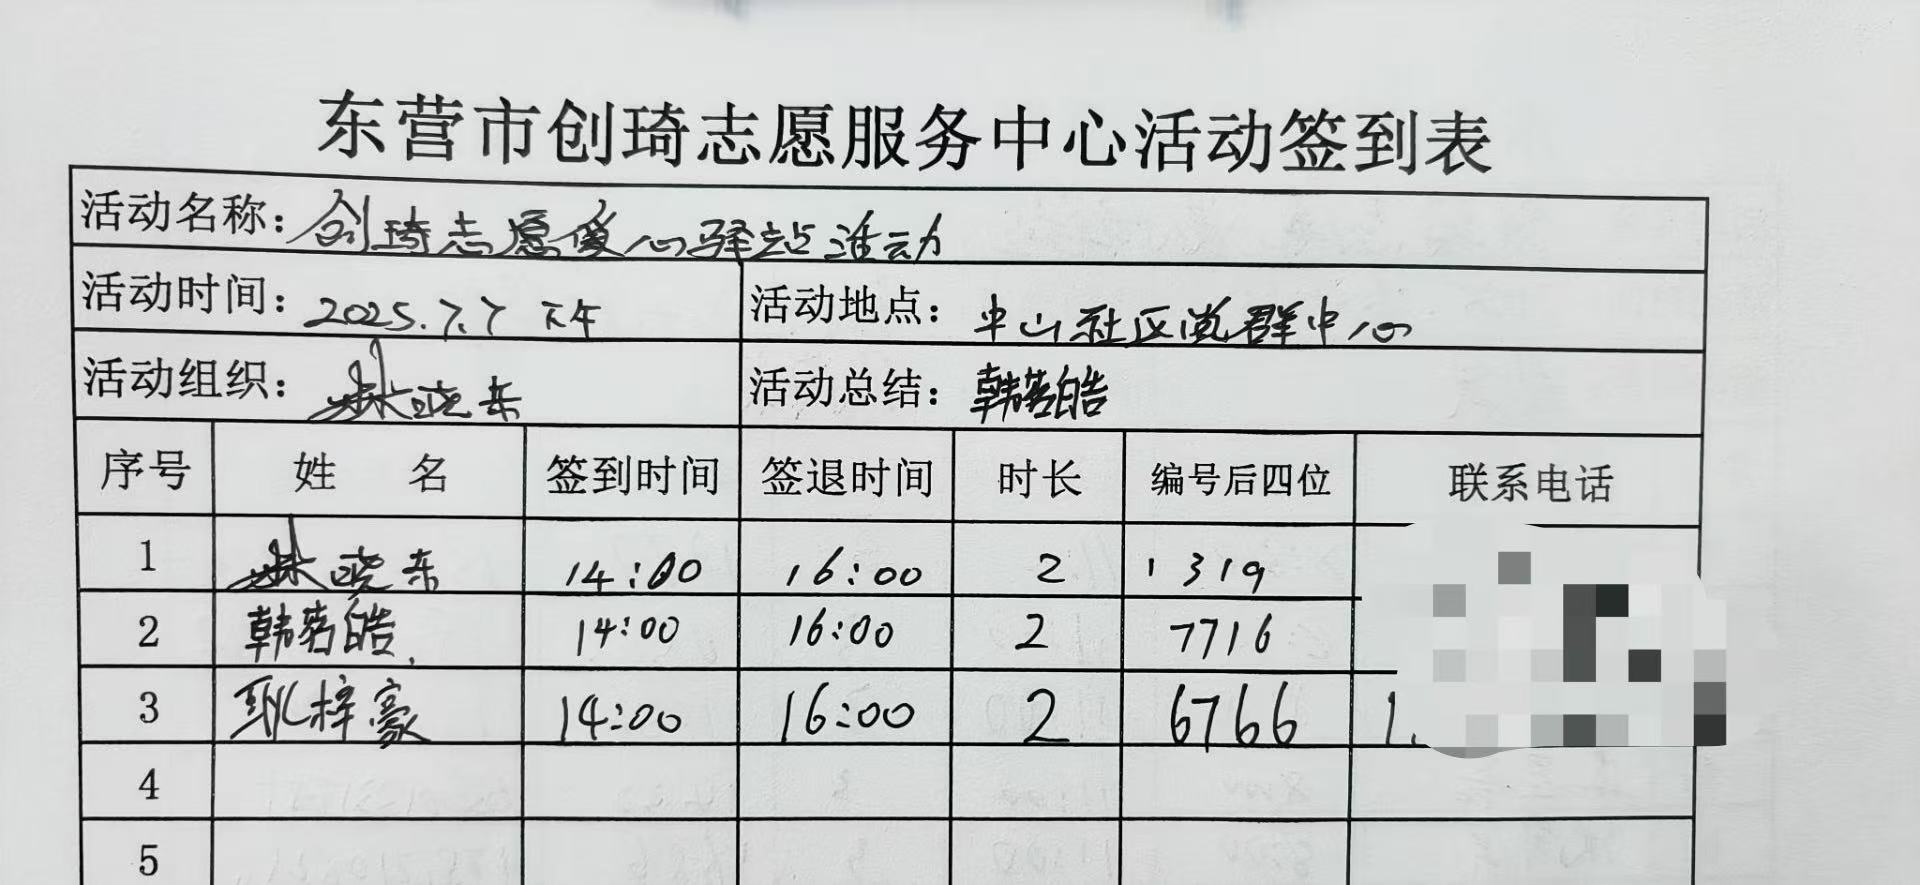 东营市创琦志愿服务中心活动签到表
活动名称：创琦志愿爱心驿站活动
活动时间：2025.7.7 下午 活动地点：中山社区党群中心
活动组织：晓东 活动总结：韩茗皓
序号 姓名 签到时间 签退时间 时长 编号后四位 联系电话
1 晓东 14:00 16:00 2 1319
2 韩茗皓 14:00 16:00 2 7716
3 耿梓豪 14:00 16:00 2 6766 1
4
5